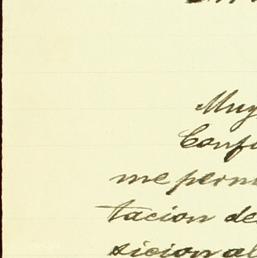 Muy
Confi
me permi
tacion de
sicion al